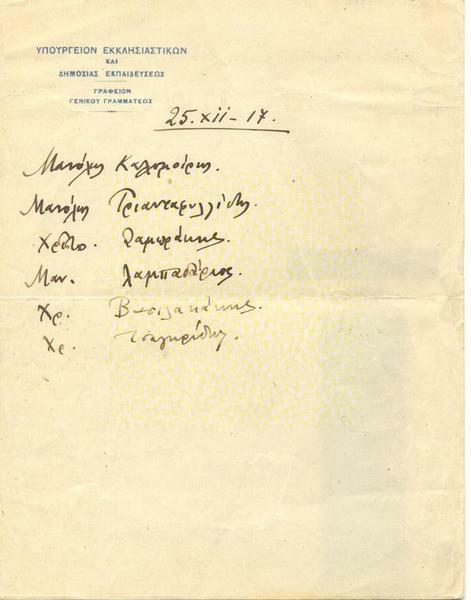 ΥΠΟΥΡΓΕΙΟΝ ΕΚΚΛΗΣΙΑΣΤΙΚΩΝ
ΚΑΙ
ΔΗΜΟΣΙΑΣ ΕΚΠΑΙΔΕΥΣΕΩΣ
ΓΡΑΦΕΙΟΝ
ΓΕΝΙΚΟΥ ΓΡΑΜΜΑΤΕΩΣ
25.XII-17.
Μανόλης Καλομοίρης.
Μανόλης Τριανταφυλλίδης
Χρῆστο.
Μαν. Λαμπαδάριος.
Χρ. Βασιλακάκης.
Χρ.